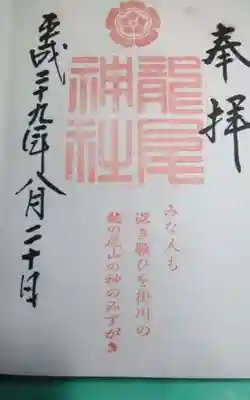 奉拝
龍尾神社
みな人も
深き願ひを掛川の
龍の尾山の神のみずがき
平成二十九年八月二十日